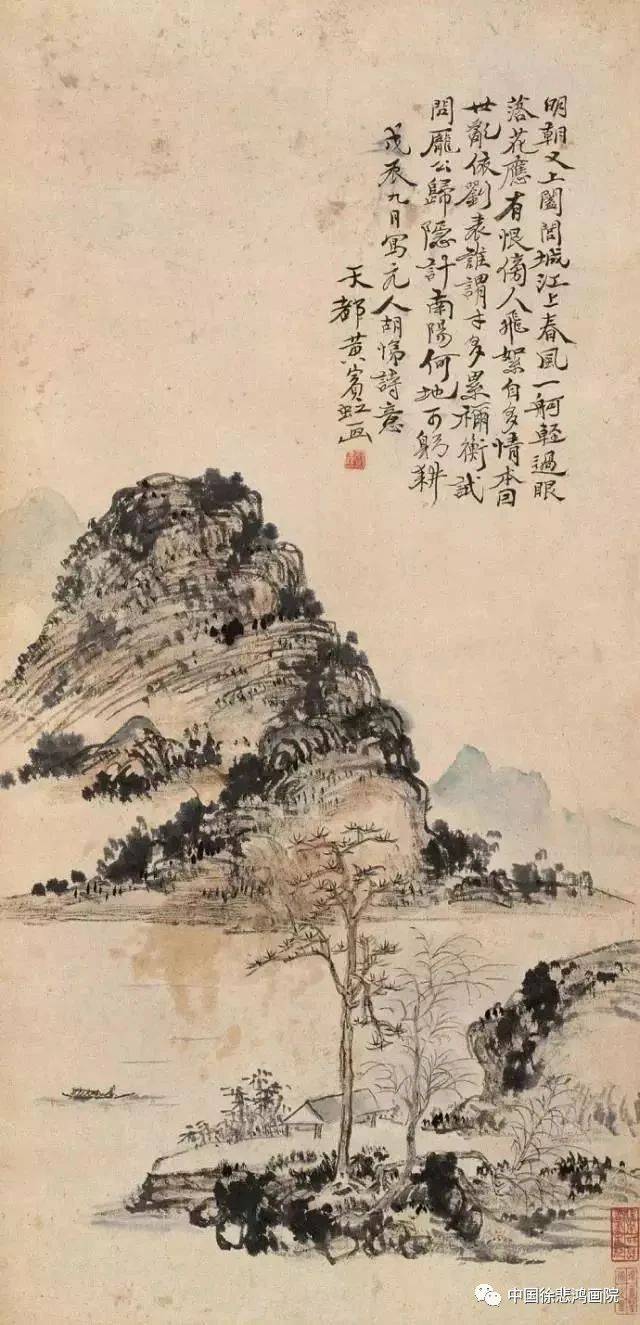 明朝又上闔閭城江上春風一舸輕過眼
落花應有恨傍人飛絮自多情本因
世亂依劉表誰謂才多累禰衡試
問龐公歸隱計南陽何地可躬耕
戊辰九月寫元人胡悌詩意
天都黄賓虹画
中国徐悲鸿画院